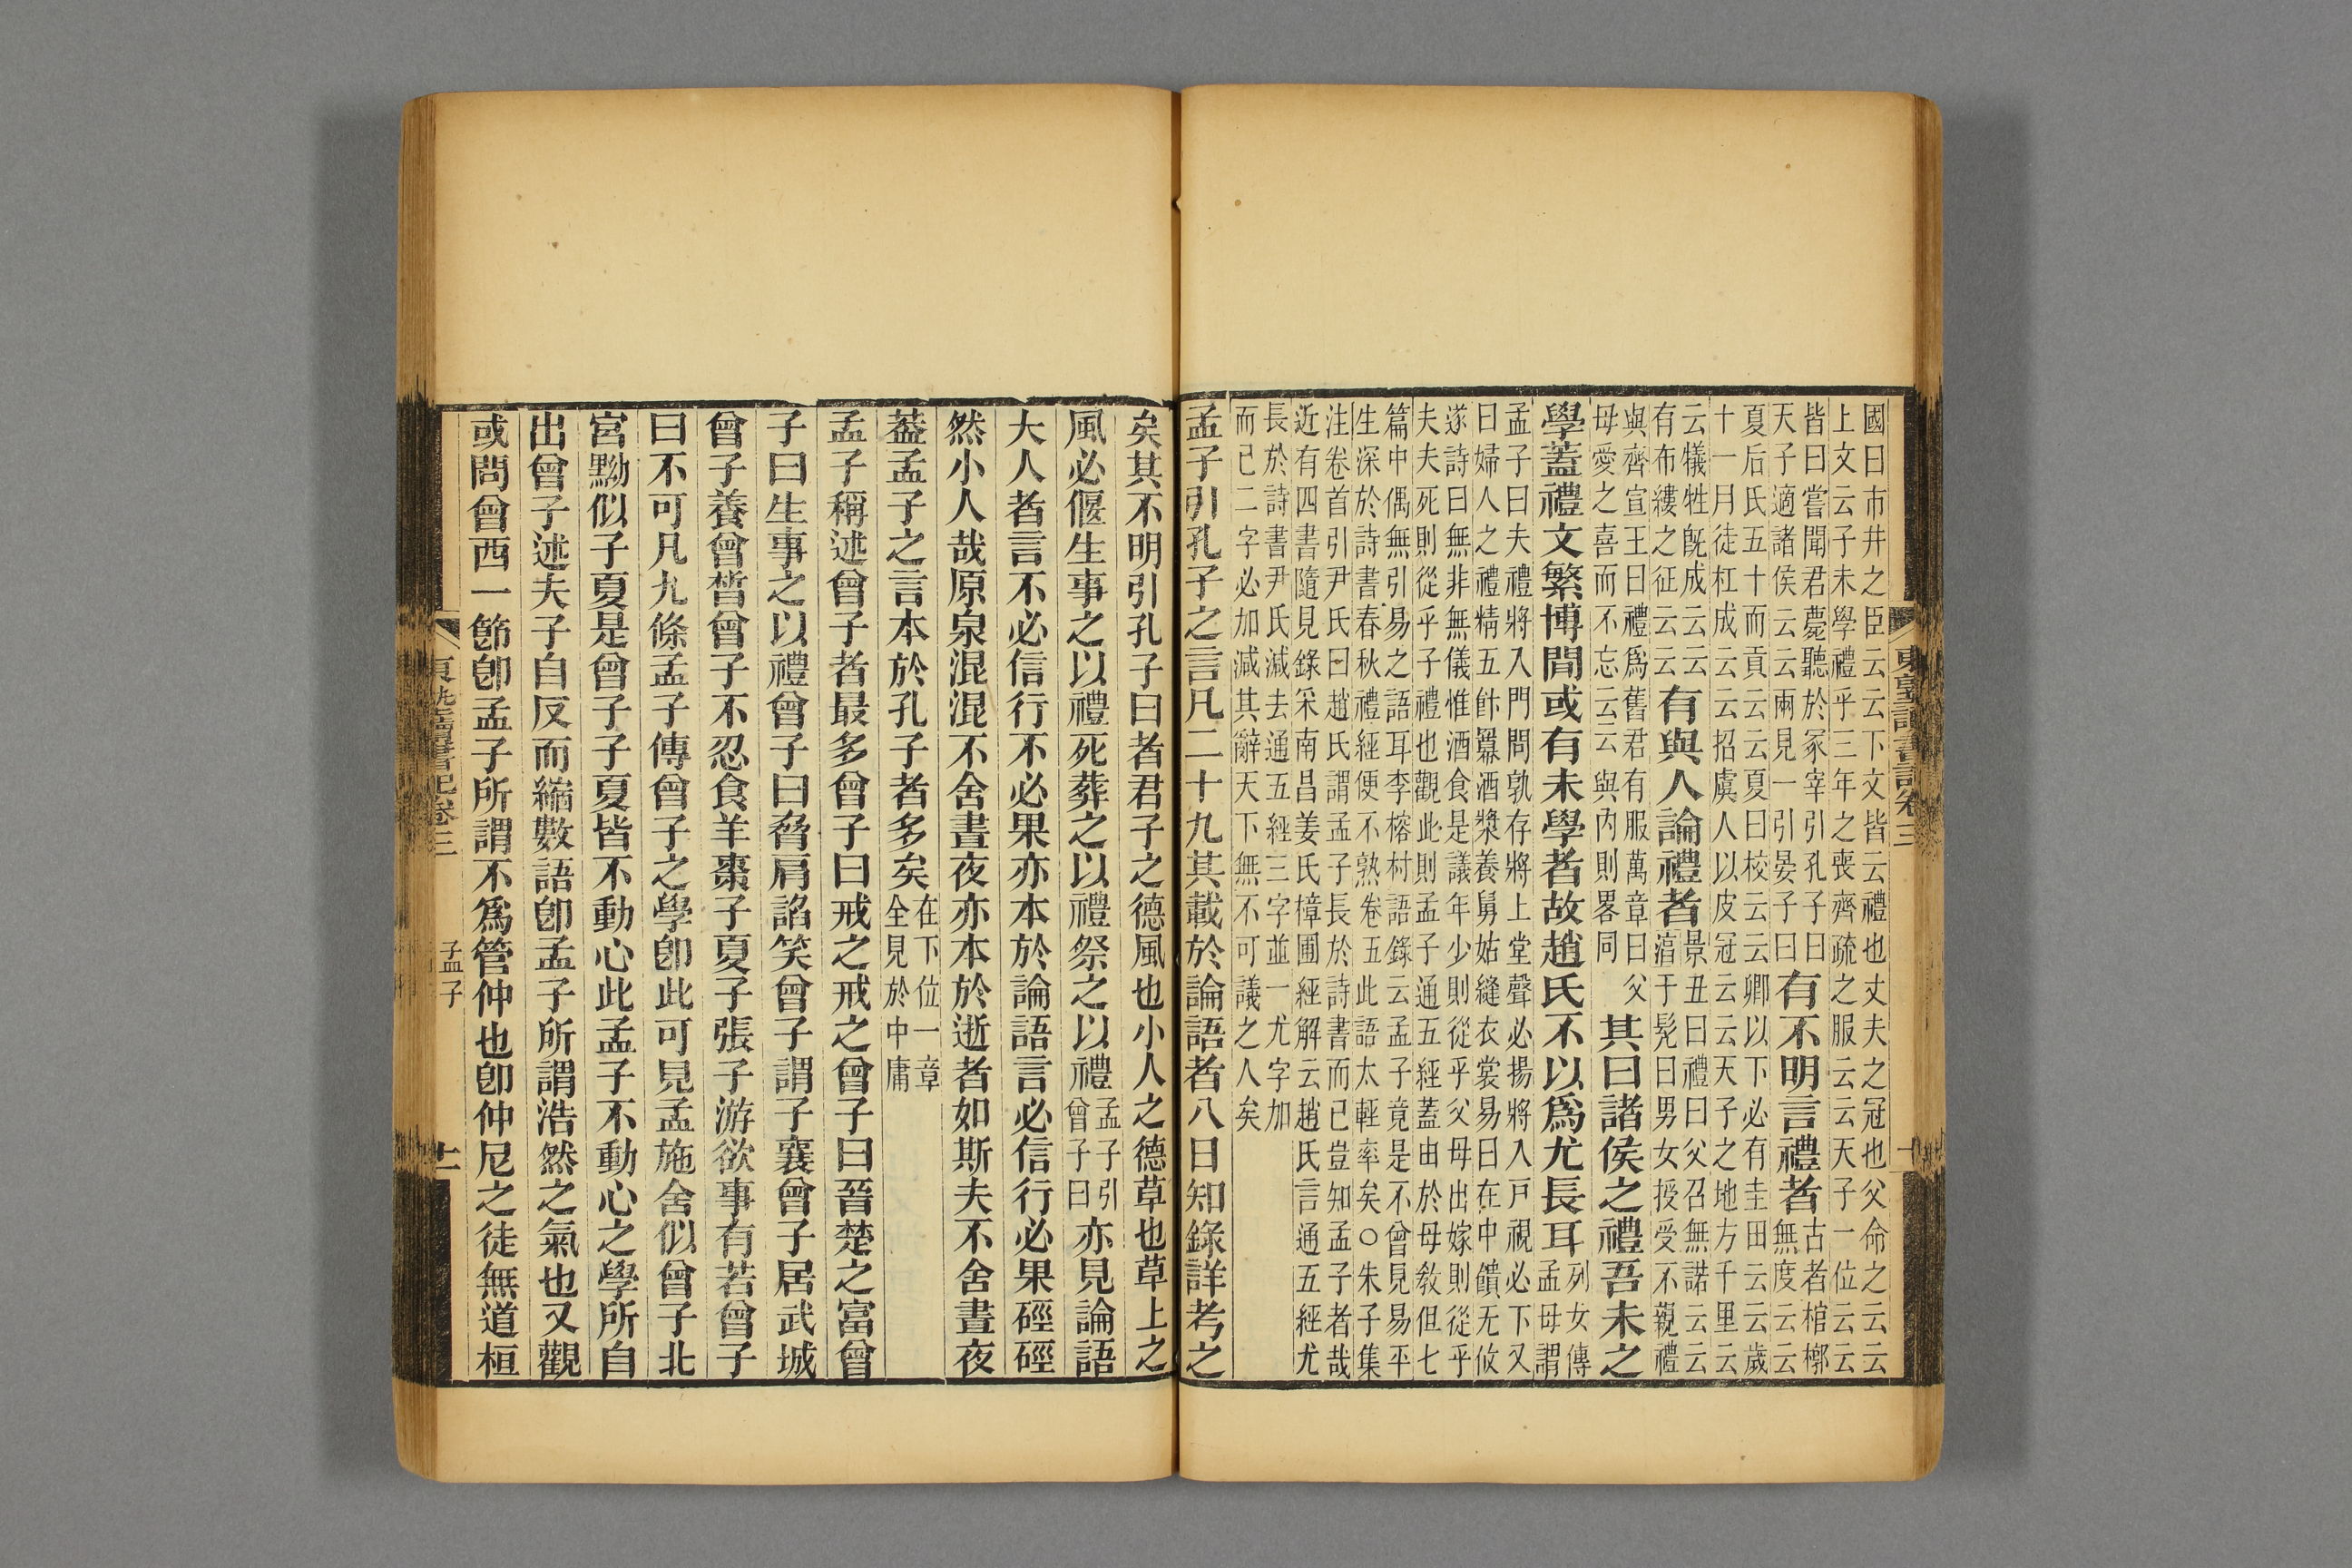 國曰市井之臣云云下文皆云禮也丈夫之冠也父命之云云
上文云子未學禮乎三年之喪齊疏之服云云天子一位云云
皆曰嘗聞君薨聽於冢宰引孔子曰
天子適諸侯云云兩見一引晏子曰
有不明言禮者
古者棺槨
無度云云
夏后氏五十而貢云云夏曰校云云卿以下必有圭田云云歲
十一月徒杠成云云招虞人以皮冠云云天子之地方千里云
云犧牲旣成云云
有布縷之征云云
有與人論禮者
景丑曰禮曰父召無諾云云
淳于髡曰男女授受不親禮
與齊宣王曰禮爲舊君有服萬章曰父
母愛之喜而不忘云云與內則畧同
其曰諸侯之禮吾未之
學蓋禮文繁博間或有未學者故趙氏不以爲尤長耳
列女傳
孟母謂
孟子曰夫禮將入門問孰存將上堂聲必揚將入戸視必下又
曰婦人之禮精五飰羃酒漿養舅姑縫衣裳易曰在中饋无攸
遂詩曰無非無儀惟酒食是議年少則從乎父母出嫁則從乎
夫夫死則從乎子禮也觀此則孟子通五經蓋由於母敎但七
篇中偶無引易之語耳李榕村語錄云孟子竟是不曾見易平
生深於詩書春秋禮經便不熟卷五此語太輕率矣○朱子集
注卷首引尹氏曰趙氏謂孟子長於詩書而已豈知孟子者哉
近有四書隨見錄采南昌姜氏樟圃經解云趙氏言通五經尤
長於詩書尹氏減去通五經三字並一尤字加
而已二字必加減其辭天下無不可議之人矣
孟子引孔子之言凡二十九其載於論語者八日知錄詳考之
矣其不明引孔子曰者君子之德風也小人之德草也草上之
風必偃生事之以禮死葬之以禮祭之以禮
孟子引
曾子曰
亦見論語
大人者言不必信行不必果亦本於論語言必信行必果硜硜
然小人哉原泉混混不舍晝夜亦本於逝者如斯夫不舍晝夜
蓋孟子之言本於孔子者多矣
在下位一章
全見於中庸
孟子稱述曾子者最多曾子曰戒之戒之曾子曰晉楚之富曾
子曰生事之以禮曾子曰脅肩諂笑曾子謂子襄曾子居武城
曾子養曾皙曾子不忍食羊棗子夏子張子游欲事有若曾子
曰不可凡九條孟子傳曾子之學卽此可見孟施舍似曾子北
宮黝似子夏是曾子子夏皆不動心此孟子不動心之學所自
出曾子述夫子自反而縮數語卽孟子所謂浩然之氣也又觀
或問曾西一節卽孟子所謂不爲管仲也卽仲尼之徒無道桓
東塾讀書記卷三
孟子
十一